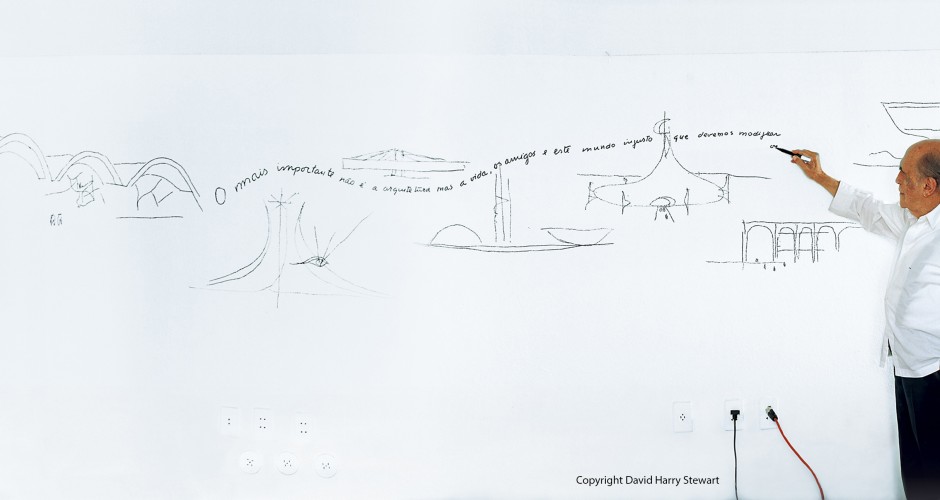 O mais importante não é a arquitetura mas a vida, os amigos e este mundo injusto que devemos modificar
Copyright David Harry Stewart